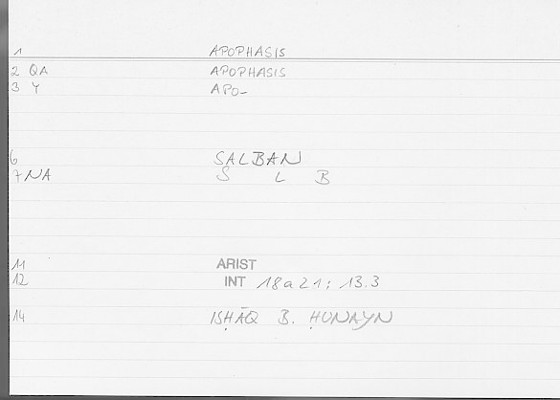 1 APOPHASIS
2 QA APOPHASIS
3 Y APO-
6 SALBAN
7 NA S L B
11 ARIST
12 INT 18a21; 13.3
14 ISḤĀQ B. ḤUNAYN